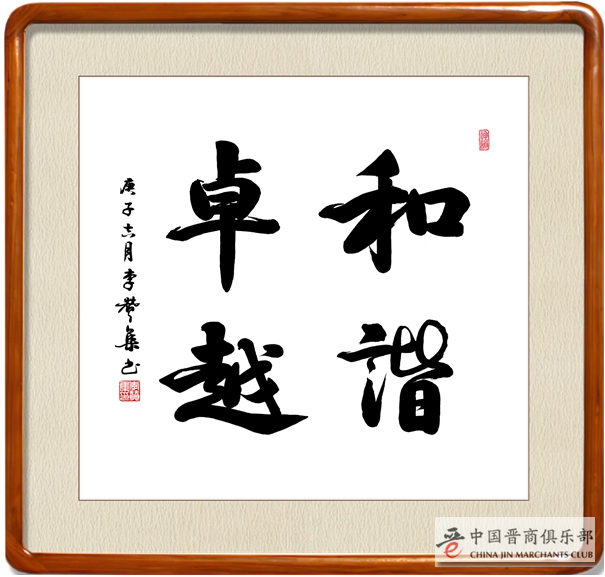 和諧
卓越
庚子六月李集书
中国晋商俱乐部
CHINA JIN MERCHANTS CLUB